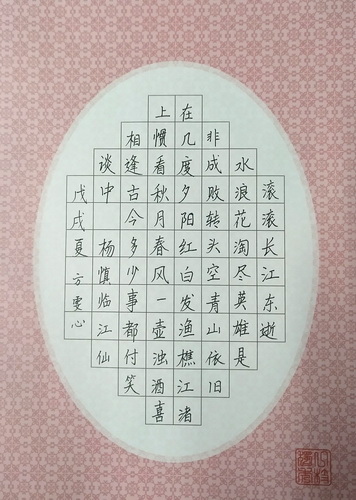 滚滚长江东逝
水浪花淘尽英雄是
非成败转头空青山依旧
在几度夕阳红白发渔樵江渚
上惯看秋月春风一壶浊酒喜
相逢古今多少事都付笑
谈中 杨慎临江仙
戊戌夏 方雯心